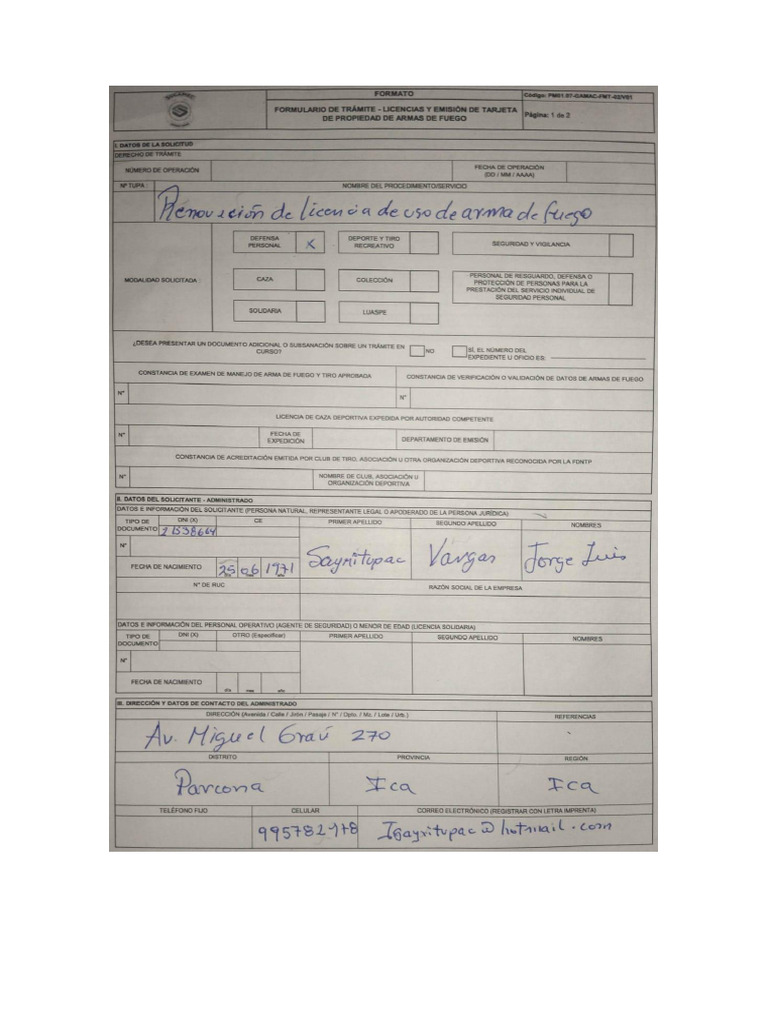 SUCAMEC
FORMATO
Código: PM01.07-GAMAC-FMT-02/V01
FORMULARIO DE TRÁMITE - LICENCIAS Y EMISIÓN DE TARJETA
DE PROPIEDAD DE ARMAS DE FUEGO
Página: 1 de 2
I. DATOS DE LA SOLICITUD
DERECHO DE TRÁMITE
NÚMERO DE OPERACIÓN
FECHA DE OPERACIÓN
(DD / MM / AAAA)
Nº TUPA :
NOMBRE DEL PROCEDIMIENTO/SERVICIO
Renovación de licencia de uso de arma de fuego
MODALIDAD SOLICITADA :
DEFENSA
PERSONAL
X
DEPORTE Y TIRO
RECREATIVO
SEGURIDAD Y VIGILANCIA
CAZA
COLECCIÓN
PERSONAL DE RESGUARDO, DEFENSA O
PROTECCIÓN DE PERSONAS PARA LA
PRESTACIÓN DEL SERVICIO INDIVIDUAL DE
SEGURIDAD PERSONAL
SOLIDARIA
LUASPE
¿DESEA PRESENTAR UN DOCUMENTO ADICIONAL O SUBSANACIÓN SOBRE UN TRÁMITE EN
CURSO?
NO
SÍ, EL NÚMERO DEL
EXPEDIENTE U OFICIO ES:
CONSTANCIA DE EXAMEN DE MANEJO DE ARMA DE FUEGO Y TIRO APROBADA
CONSTANCIA DE VERIFICACIÓN O VALIDACIÓN DE DATOS DE ARMAS DE FUEGO
Nº
Nº
LICENCIA DE CAZA DEPORTIVA EXPEDIDA POR AUTORIDAD COMPETENTE
Nº
FECHA DE
EXPEDICIÓN
DEPARTAMENTO DE EMISIÓN
CONSTANCIA DE ACREDITACIÓN EMITIDA POR CLUB DE TIRO, ASOCIACIÓN U OTRA ORGANIZACIÓN DEPORTIVA RECONOCIDA POR LA FDNTP
Nº
NOMBRE DE CLUB, ASOCIACIÓN U
ORGANIZACIÓN DEPORTIVA
II. DATOS DEL SOLICITANTE - ADMINISTRADO
DATOS E INFORMACIÓN DEL SOLICITANTE (PERSONA NATURAL, REPRESENTANTE LEGAL O APODERADO DE LA PERSONA JURÍDICA)
TIPO DE
DOCUMENTO
DNI (X)
CE
PRIMER APELLIDO
SEGUNDO APELLIDO
NOMBRES
21538664
Nº
Sayritupac
Vargas
Jorge Luis
FECHA DE NACIMIENTO
25 06 1971
Nº DE RUC
RAZÓN SOCIAL DE LA EMPRESA
DATOS E INFORMACIÓN DEL PERSONAL OPERATIVO (AGENTE DE SEGURIDAD) O MENOR DE EDAD (LICENCIA SOLIDARIA)
TIPO DE
DOCUMENTO
DNI (X)
OTRO (Especificar)
PRIMER APELLIDO
SEGUNDO APELLIDO
NOMBRES
Nº
FECHA DE NACIMIENTO
III. DIRECCIÓN Y DATOS DE CONTACTO DEL ADMINISTRADO
DIRECCIÓN (Avenida / Calle / Jirón / Pasaje / N° / Dpto. / Mz. / Lote / Urb.)
REFERENCIAS
Av. Miguel Graú 270
DISTRITO
PROVINCIA
REGIÓN
Parcona
Ica
Ica
TELÉFONO FIJO
CELULAR
CORREO ELECTRÓNICO (REGISTRAR CON LETRA IMPRENTA)